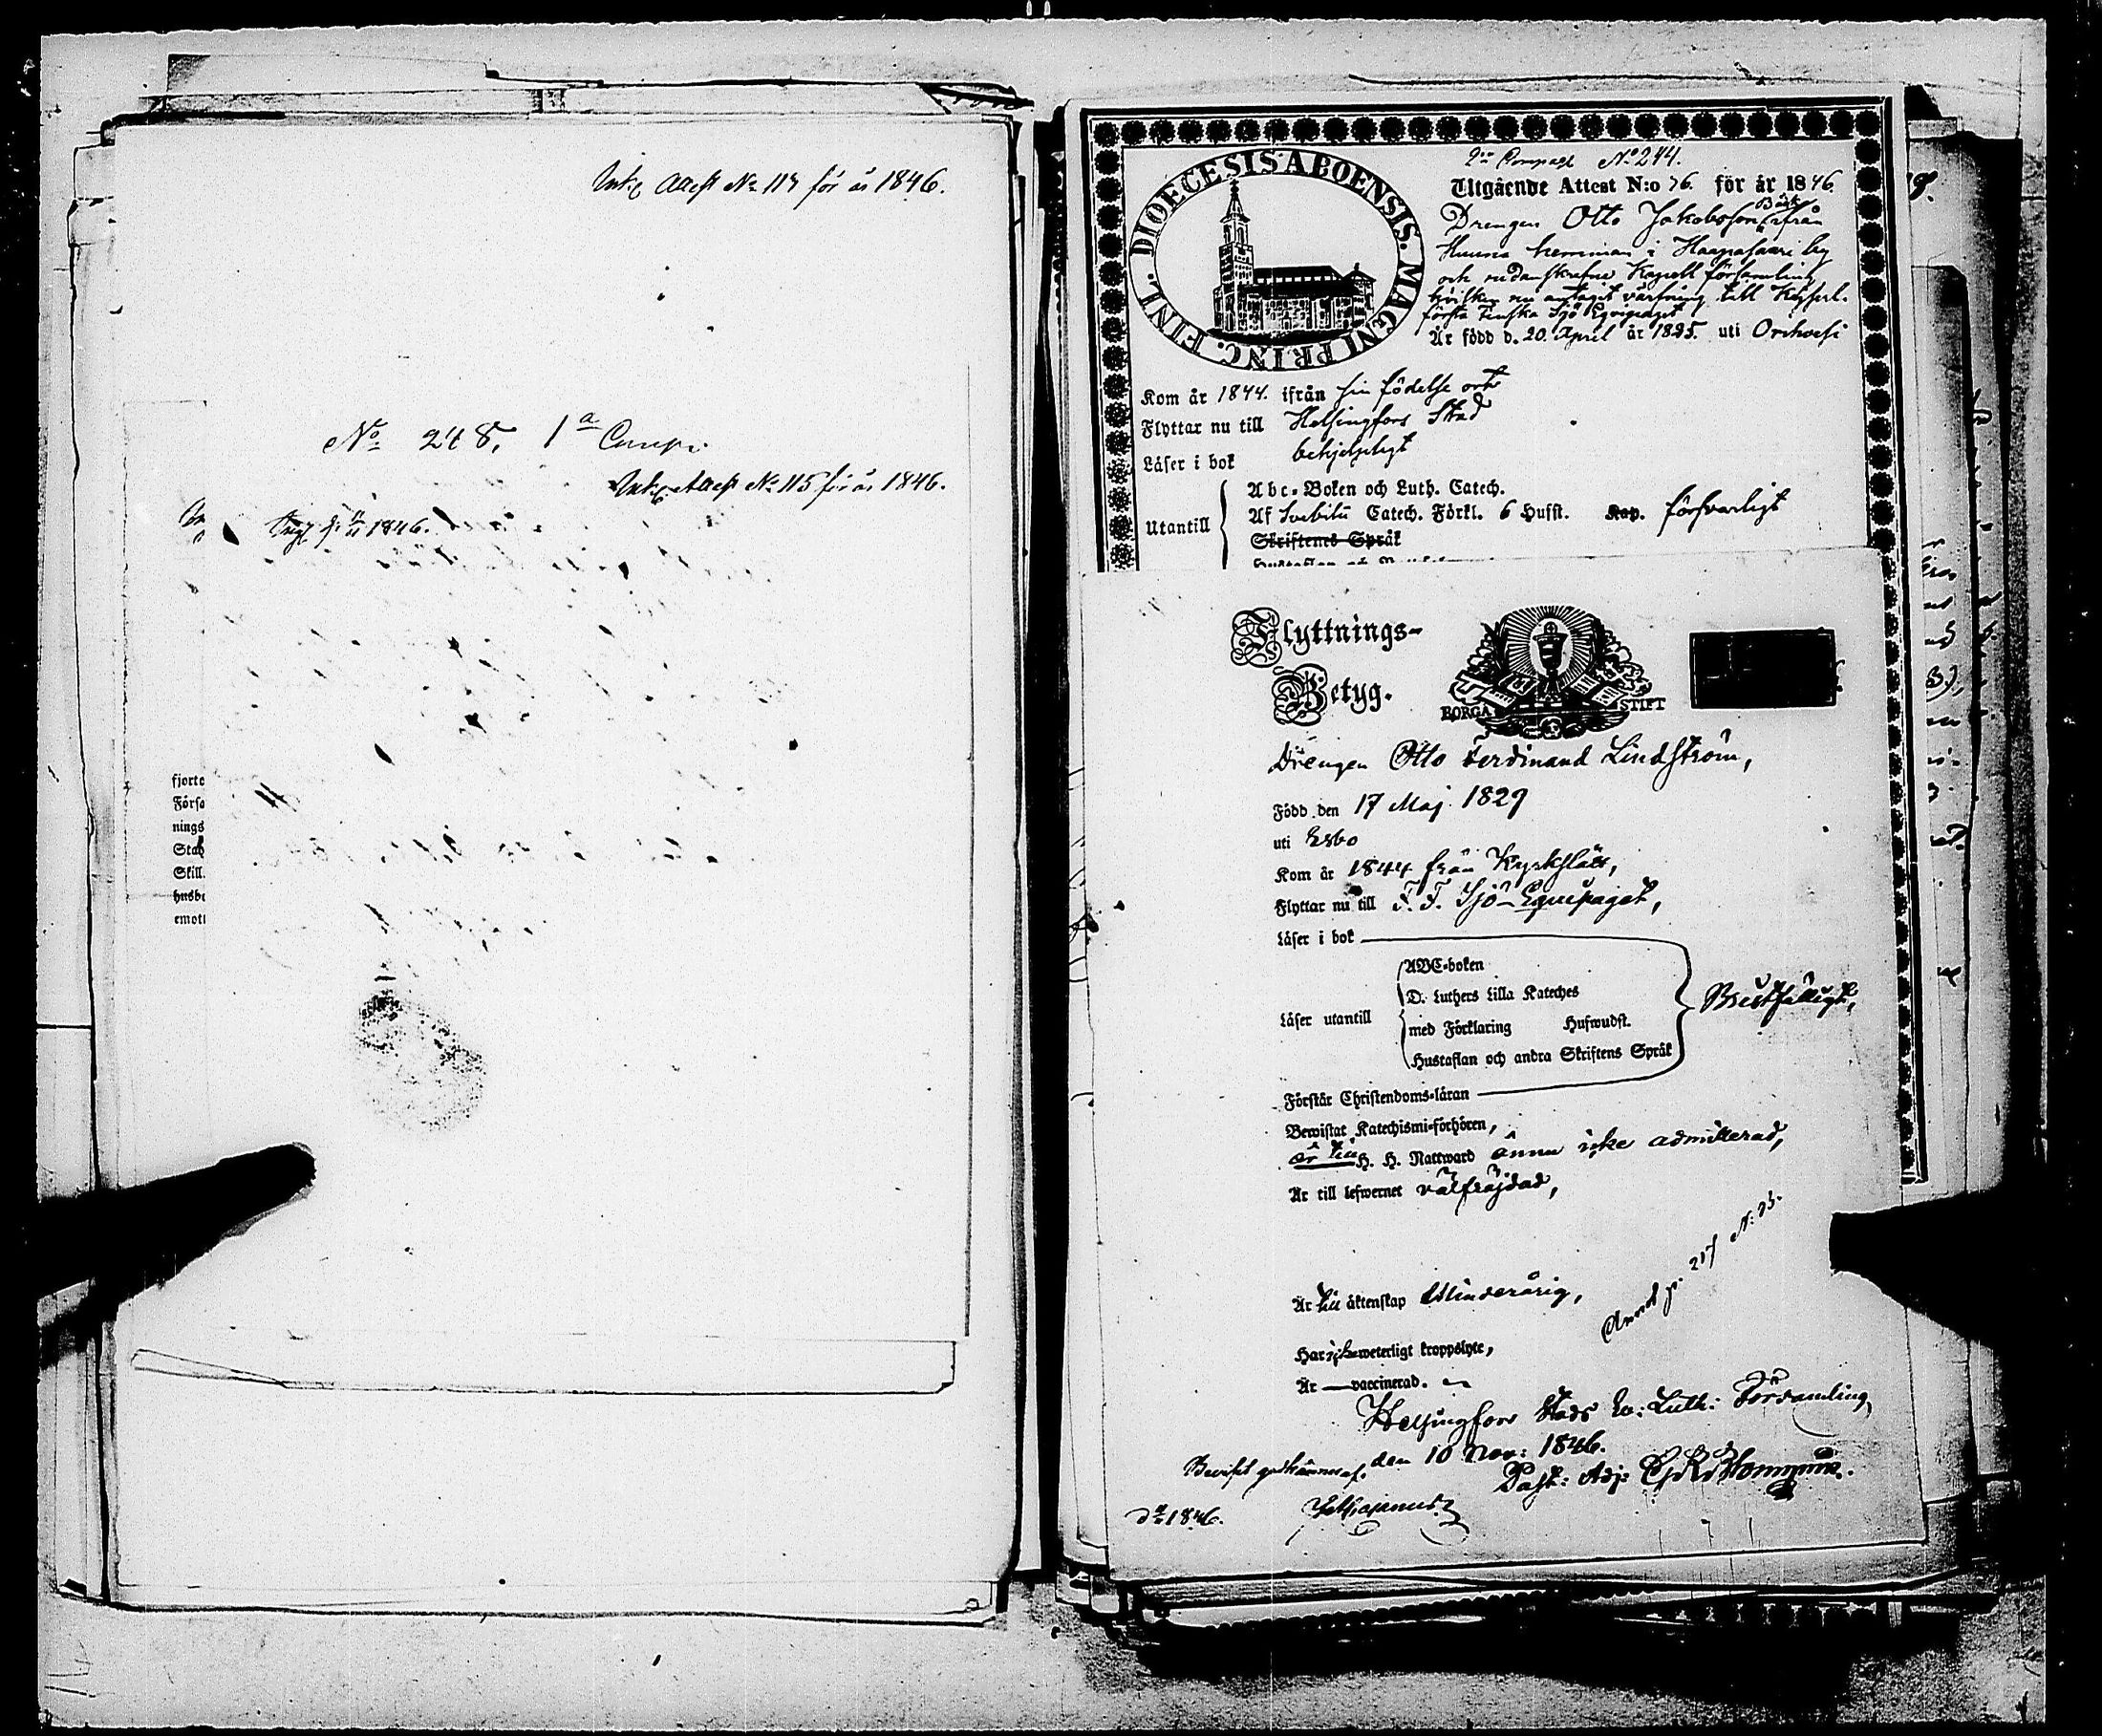 Ink. Attest No 114 för år 1846.
No 248. 1a Comp.
Ink. Attest No 115 för år 1846.
1846.
fjorte
Förso
nings
Stad
Skill.
husbe
emott
DIOECESIS ABOENSIS. MAGNI PRINC. FINL.
No 244.
Utgående Attest N:o 76. för år 1846.
Drengen Otto Jakobsson Bäck ifrån
hemman i Haapasaari by
och Kapell församling
hvilken nu antagit värfning till Kejserl.
första Finska Sjö Equipaget
Är född d. 20. April år 1825. uti Orihvesi
Kom år 1844. ifrån sin födelse ort
Flyttar nu till Helsingfors Stad
Läser i bok behjelpligt
Utantill
Abc-Boken och Luth. Catech.
Af Svebilii Catech. Förkl. 6 Hufst. Kap. försvarligt
Skriftenes Språk
Flyttnings-
Betyg.
BORGÅ STIFT
Drengen Otto Ferdinand Lindström,
Född den 17 Maj 1829
uti Esbo
Kom år 1844 från Kyrkslätt,
Flyttar nu till F. F. Sjö-Equipaget,
Läser i bok
ABC-boken
D. Luthers Lilla Kateches
Läser utantill
med Förklaring Hufwudst.
Hustaflan och andra Skriftens Språk
Bristfälligt,
Förstår Christendoms-läran
Bewistat Katechismi-förhören,
är till H. H. Nattward ännu icke admitterad,
Är till lefwernet välfräjdad,
Är till äktenskap Minderårig,
Har icke weterligt kroppslyte,
Är — vaccinerad.
Annot p. 217 N: 25.
Helsingfors Stads Ev: Luth: Församling,
den 10 Nov: 1846.
Beviset godkännes af,
Past: Adj:
1846.